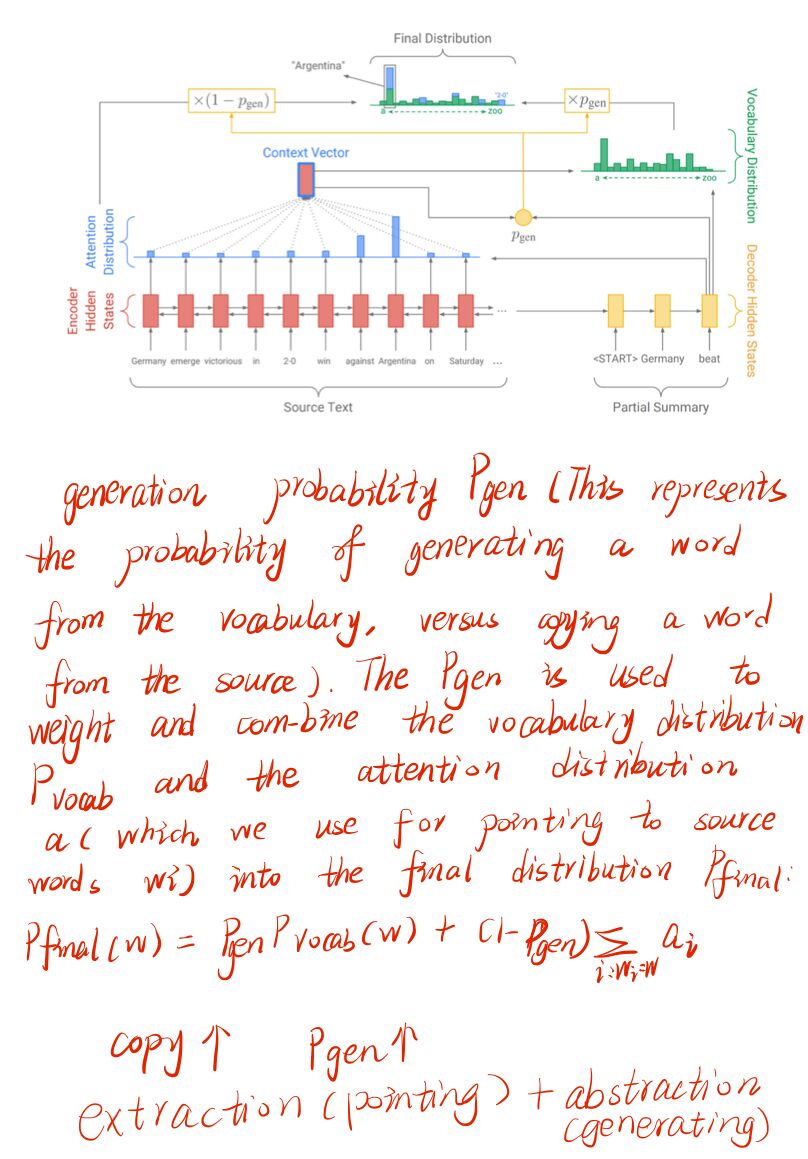 Final Distribution
"Argentina"
×(1 − pgen)
×pgen
"2-0"
a
zoo
Vocabulary Distribution
Context Vector
a
zoo
Attention
Distribution
pgen
Encoder
Hidden
States
Decoder Hidden States
...
Germany emerge victorious in 2-0 win against Argentina on Saturday ...
<START> Germany beat
Source Text
Partial Summary
generation probability Pgen (This represents
the probability of generating a word
from the vocabulary, versus copying a word
from the source). The Pgen is used to
weight and com-bine the vocabulary distribution
Pvocab and the attention distribution
a( which we use for pointing to source
words wi) into the final distribution Pfinal:
Pfinal(w) = Pgen Pvocab(w) + (1-Pgen) ∑ i:wi=w ai
copy ↑ Pgen ↑
extraction (pointing) + abstraction
(generating)